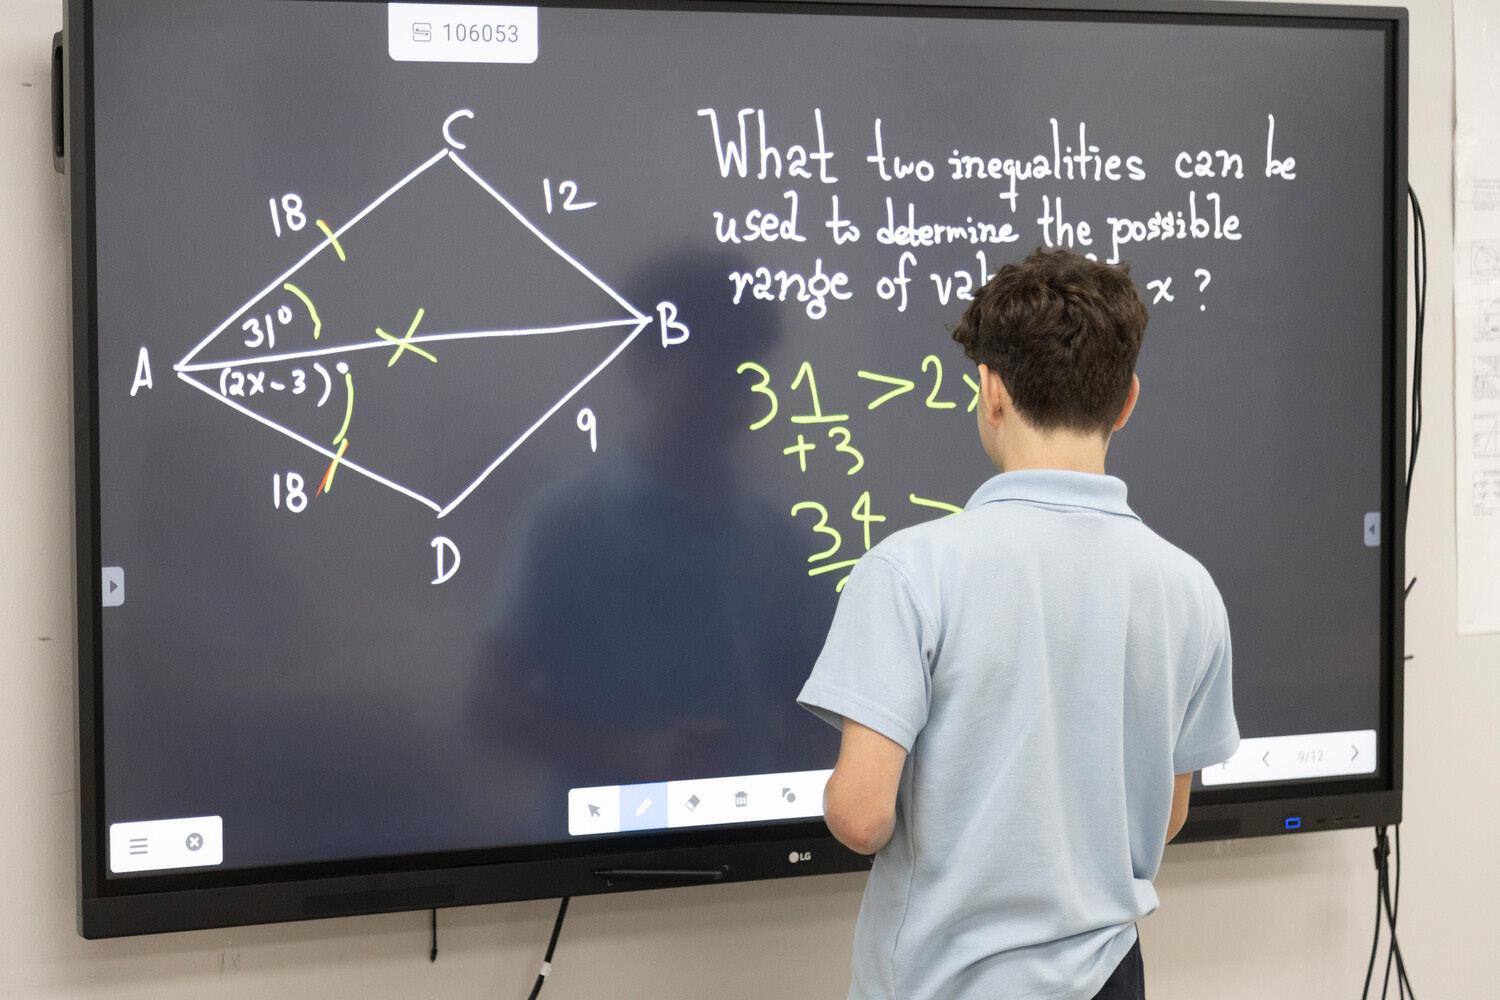 106053
C
18
12
31°
A
B
(2x-3)°
18
9
D
What two inequalities can be
used to determine the possible
range of x ?
31 > 2x
+3
34 >
9/12
LG